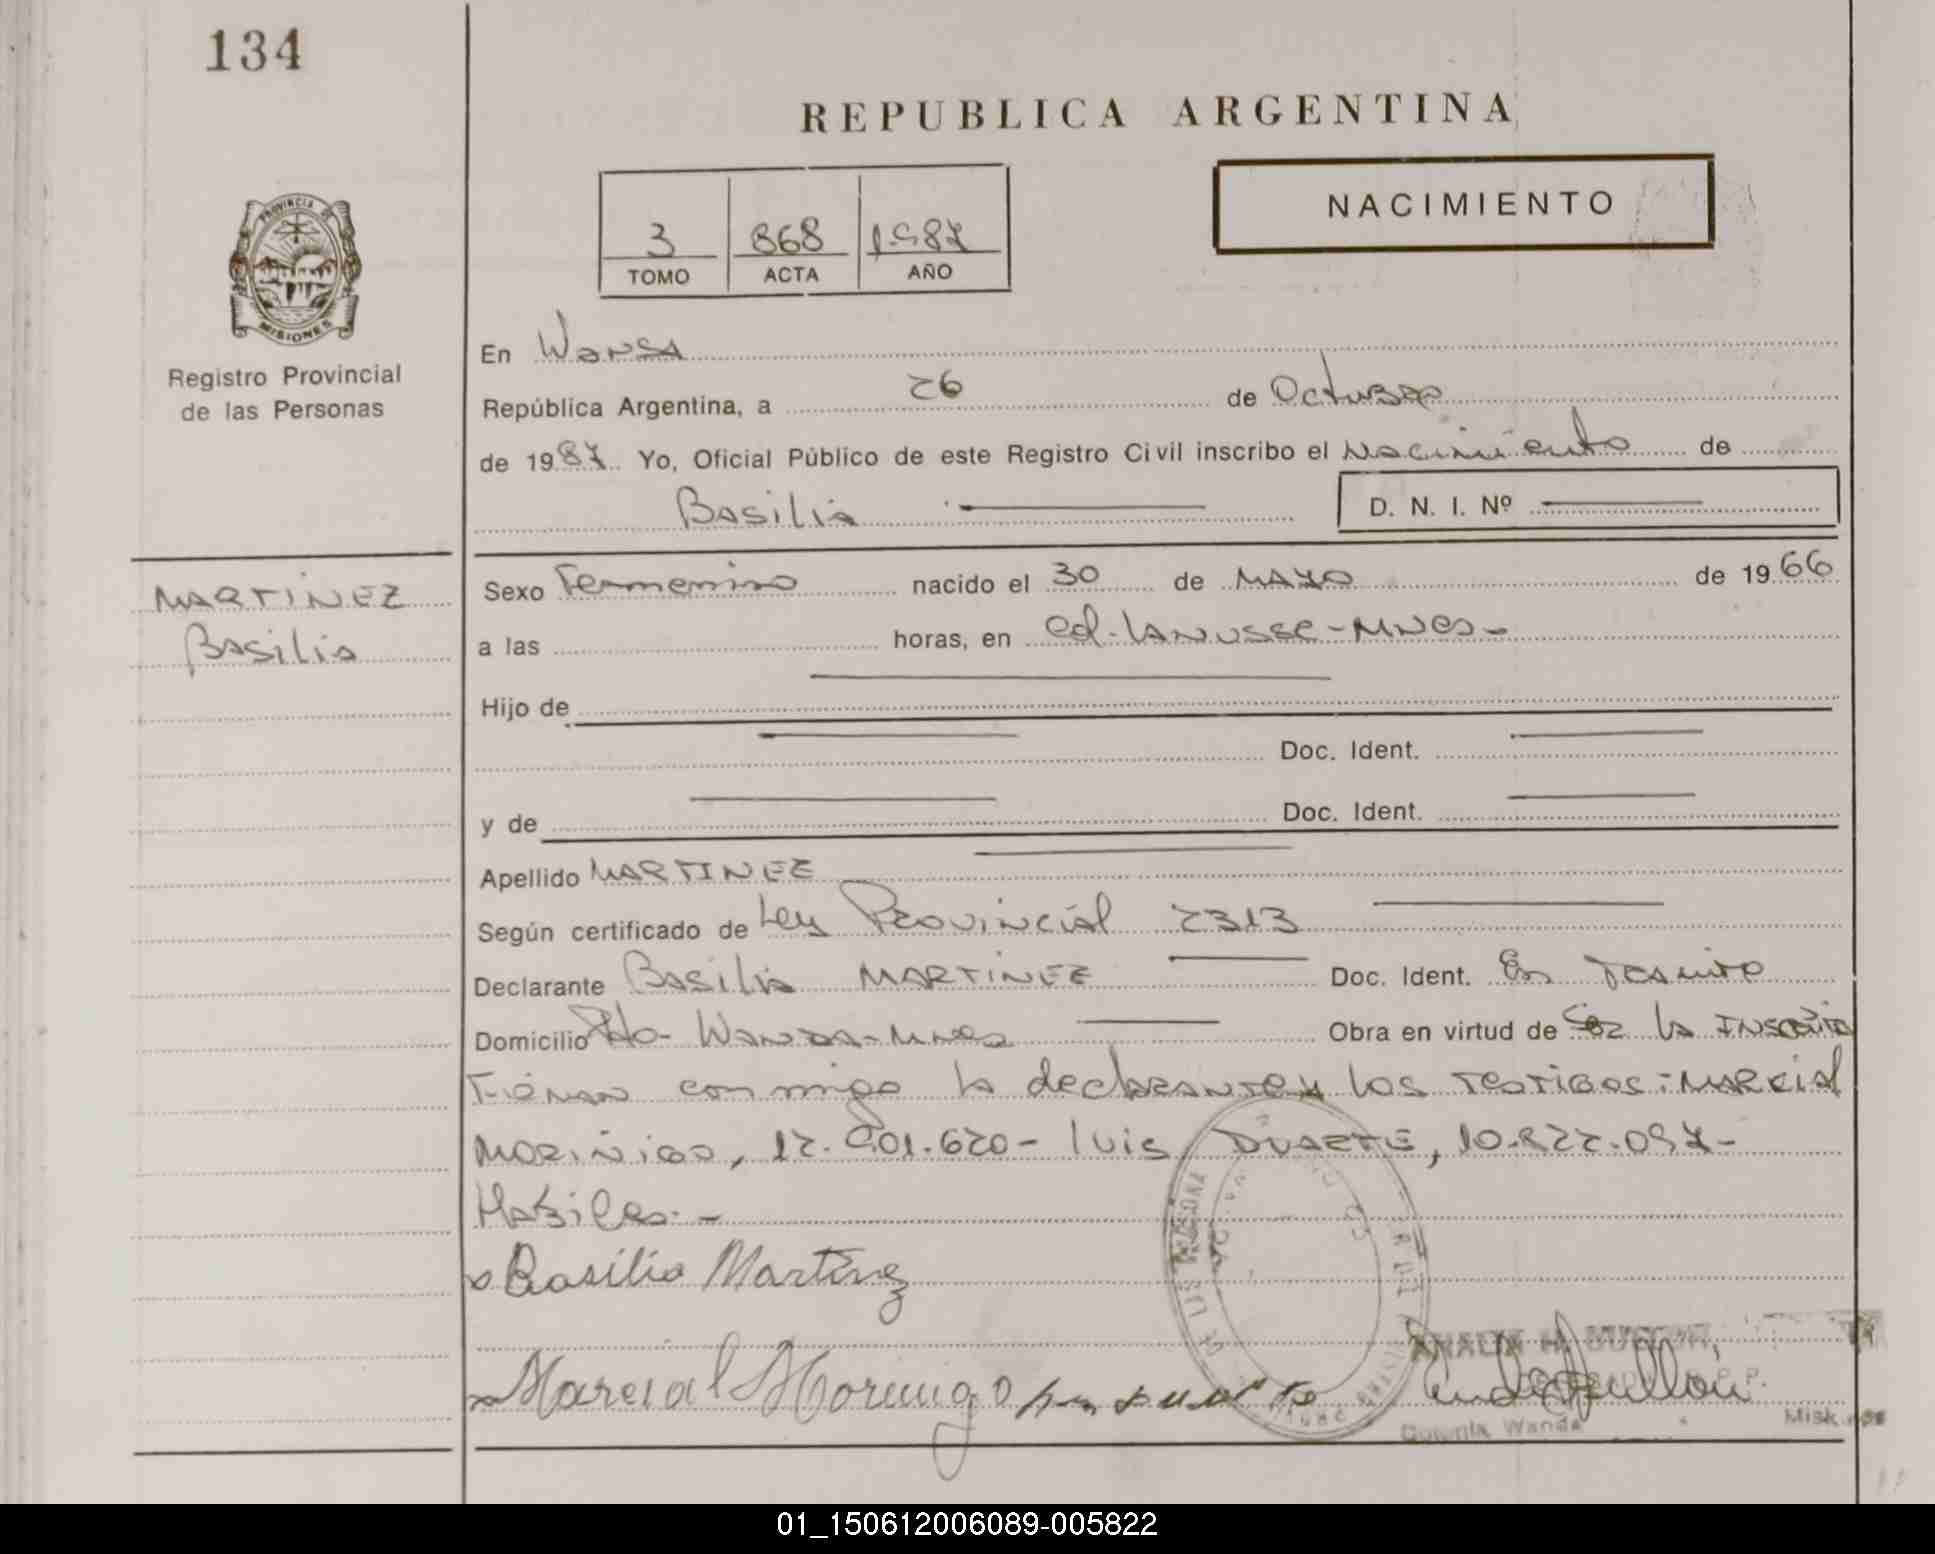 134
REPUBLICA ARGENTINA
NACIMIENTO
3 868 1987
TOMO ACTA AÑO
PROVINCIA DE
MISIONES
Registro Provincial
de las Personas
En Wanda
República Argentina, a 26 de Octubre
de 1987 Yo, Oficial Público de este Registro Civil inscribo el Nacimiento de
Basilia D. N. I. Nº
MARTINEZ
Basilia
Sexo Femenino nacido el 30 de MAYO de 1966
a las horas, en Cd. LANUSSE-MNES-
Hijo de
Doc. Ident.
y de Doc. Ident.
Apellido MARTINEZ
Según certificado de Ley Provincial 2313
Declarante Basilia MARTINEZ Doc. Ident. En Tramite
Domicilio Pto- WANDA-Mnes Obra en virtud de Ser la Inscrita
Firman conmigo la declarante y los testigos: MARCIAL
MORINIGO, 12.901.620- Luis DUARTE, 10.822.097-
Habiles.-
Basilia Martinez
Marcial Morinigo
Colonia Wanda
01_150612006089-005822